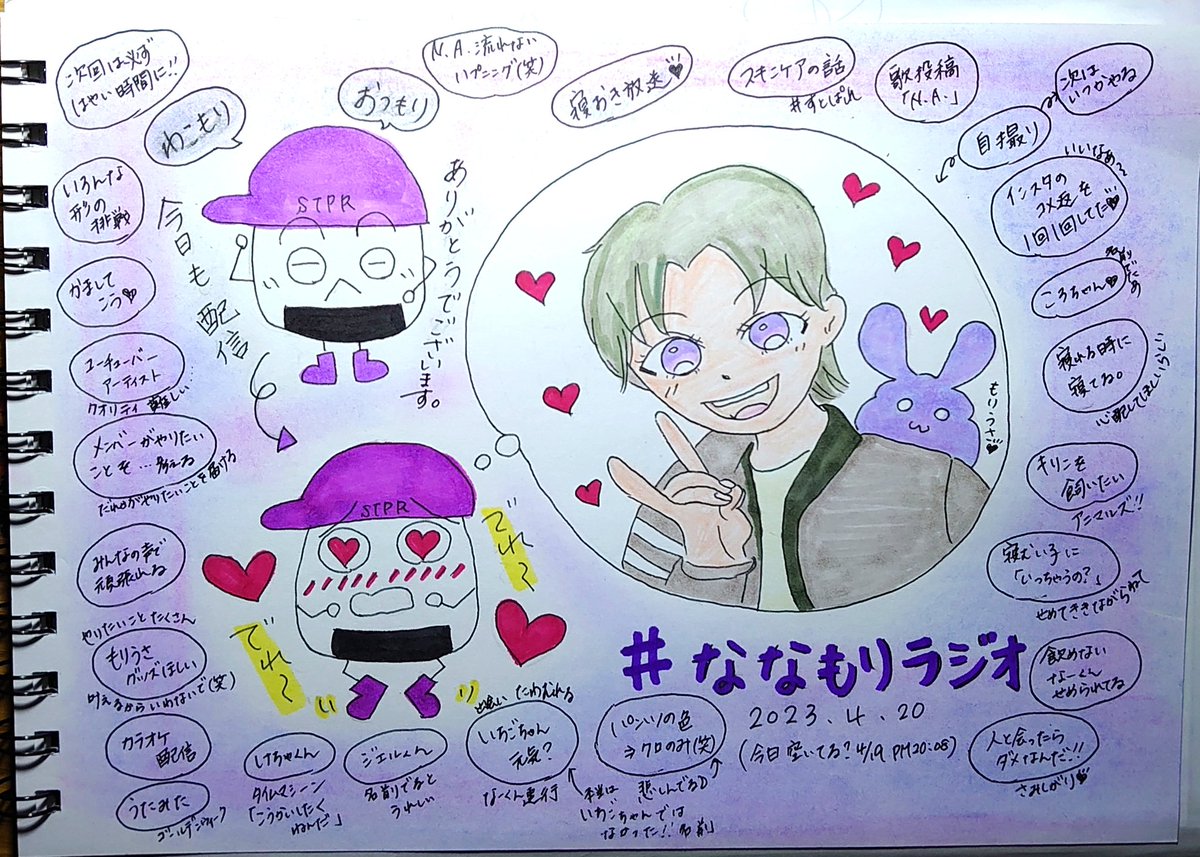 次回は必ず
はやい時間に!!
わこもり
おつもり
N.A.流れない
ハプニング(笑)
寝おき放送
スキンケアの話
#すとぱれ
歌投稿
「N.A.」
次は
いつかやる
自撮り
いろんな
形の
挑戦
今日も配信
STPR
ありがとうでございます。
いいなあ〜
インスタの
コメ返を
1回1回してた
かまして
こう
ころちゃん
もりうさ
ユーチューバー
アーティスト
クオリティ
寝れる時に
寝てね。
心配してほしいらしい
メンバーがやりたい
ことを…考える
だれかがやりたいことを届ける
STPR
でれ〜
でれ〜
キリンを
飼いたい
アニマルズ!!
みんなの幸で
頑張れる
寝むい子に
「いっちゃうの?」
やりたいことたくさん
もりうさ
グッズほしい
叶えるからいわないで(笑)
#ななもりラジオ
飲めない
なーくん
せめられてる
2023.4.20
(今日空いてる?4/19 PM20:08)
人と会ったら
ダメなんだ!!
さみしがり
カラオケ
配信
うたみた
ゴールデンウィーク
けちゃくん
タイムマシーン
ジェルくん
名前りでると
うれしい
いちごちゃん
元気?
なーくん悪行
パンツの色
⇒クロのみ(笑)
本当は
いちごちゃんでは
なかった!!
悲しんでる